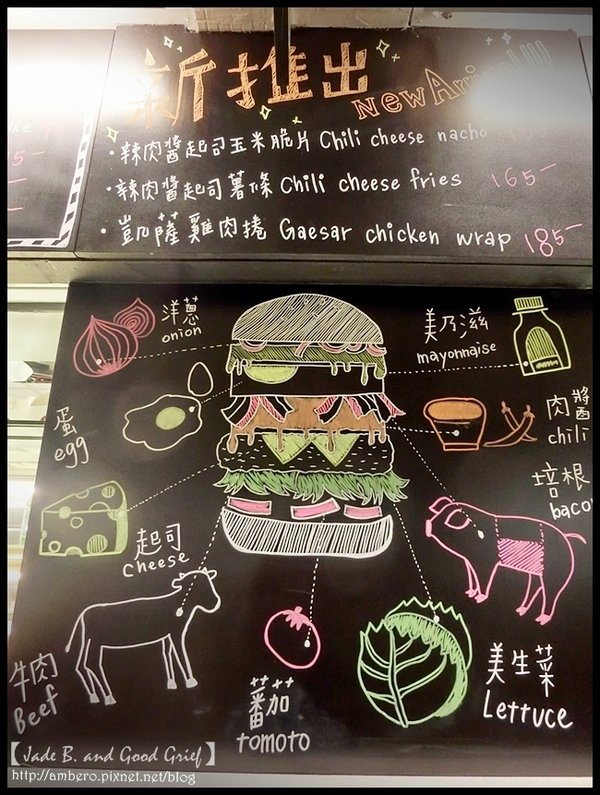 新推出 New Arrival!!!
·辣肉醬起司玉米脆片 Chili cheese nacho
·辣肉醬起司薯條 Chili cheese fries 165-
·凱薩雞肉捲 Gaesar chicken wrap 185-
洋蔥
onion
美乃滋
mayonnaise
蛋
egg
肉醬
chili
培根
bacon
起司
cheese
牛肉
Beef
蕃加
tomoto
美生菜
Lettuce
【Jade B. and Good Grief】
http://ambero.pixnet.net/blog